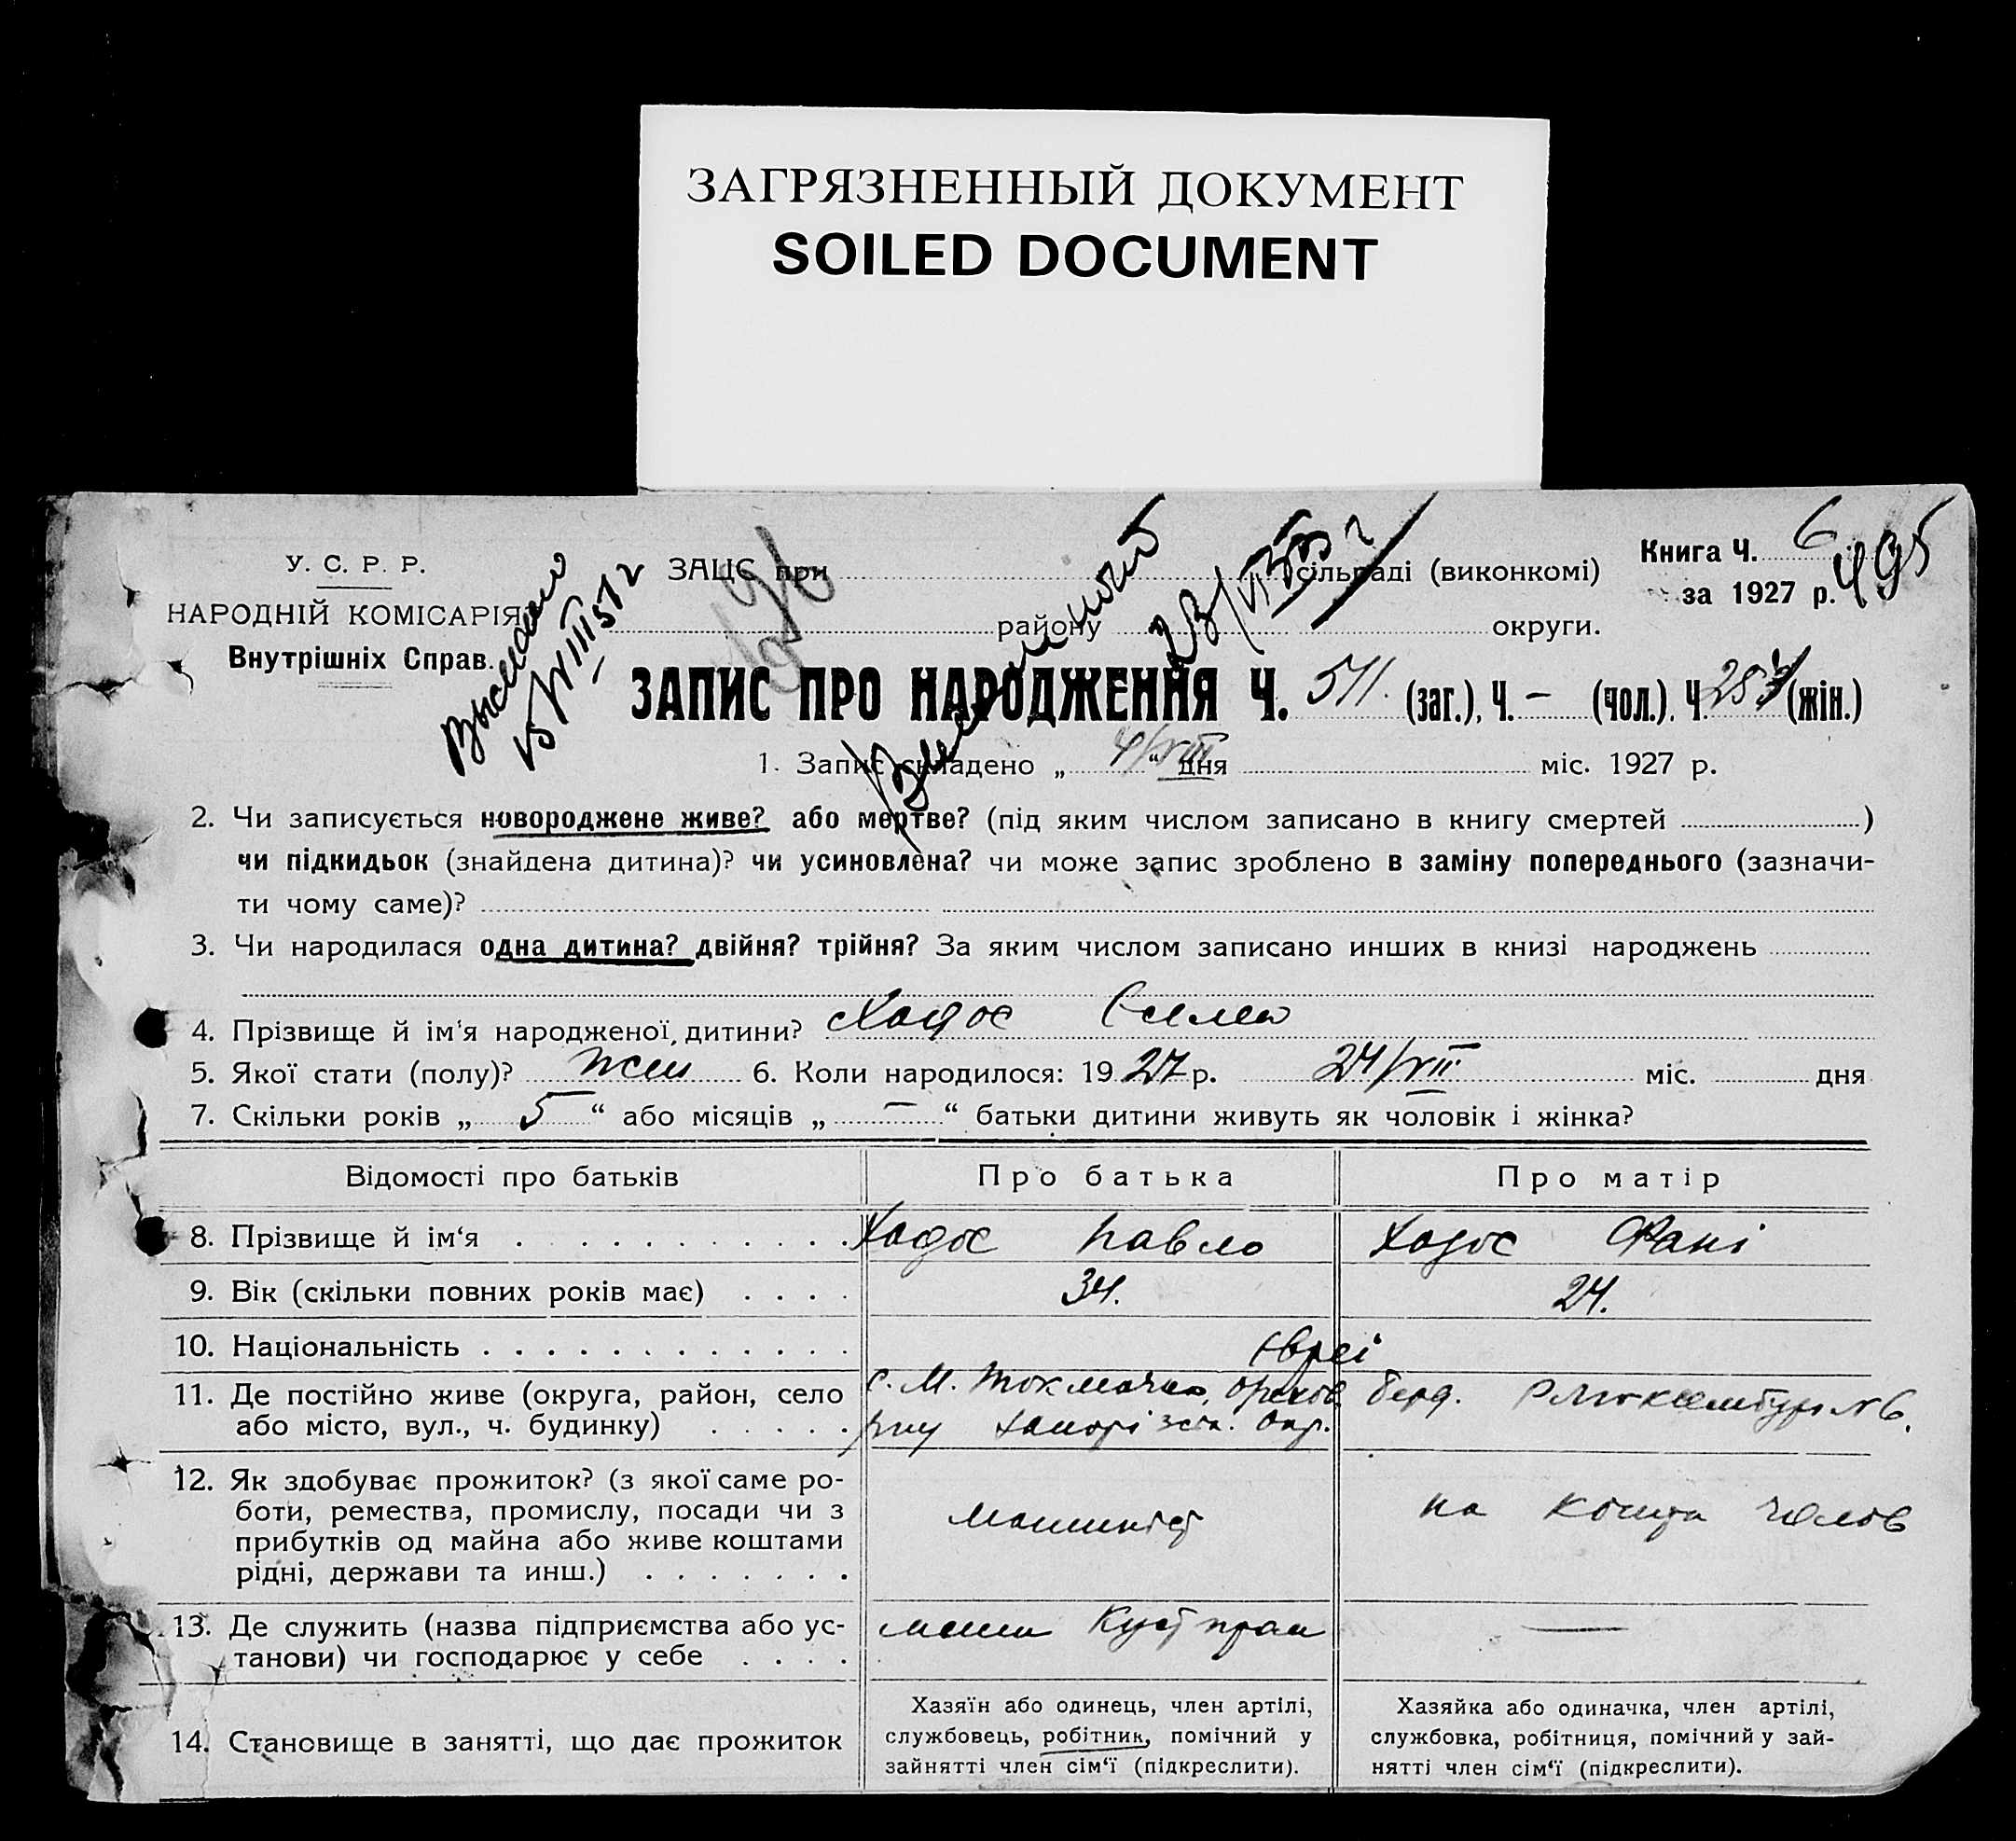 ЗАГРЯЗНЕННЫЙ ДОКУМЕНТ
SOILED DOCUMENT
У. С. Р. Р.
НАРОДНІЙ КОМІСАРІЯ
Внутрішніх Справ.
ЗАЦС при сільраді (виконкомі)
району округи.
Книга Ч. 6
за 1927 р. 495
Выслано
23/VI 53 г
ЗАПИС ПРО НАРОДЖЕННЯ Ч. 511. (заг.), Ч. – (чол.). Ч. (жін.)
1. Запис складено „ 4/VIII “ дня міс. 1927 р.
2. Чи записується новороджене живе? або мертве? (під яким числом записано в книгу смертей )
чи підкидьок (знайдена дитина)? чи усиновлена? чи може запис зроблено в заміну попереднього (зазначи-
ти чому саме)?
3. Чи народилася одна дитина? двійня? трійня? За яким числом записано инших в книзі народжень
4. Прізвище й ім'я народженої дитини? Ходос
5. Якої стати (полу)? жін 6. Коли народилося: 19 27 р. 24/VII міс. дня
7. Скільки років „ 5 “ або місяців „ — “ батьки дитини живуть як чоловік і жінка?
Відомості про батьків Про батька Про матір
8. Прізвище й ім‘я Ходос Павло Ходос Фані
9. Вік (скільки повних років має) 34. 24.
10. Національність Євреї
11. Де постійно живе (округа, район, село С. М. Токмачка, Оріхов. Берд.
або місто, вул., ч. будинку) р-ну Запорізьк. Окр.
12. Як здобуває прожиток? (з якої саме ро-
боти, ремества, промислу, посади чи з
прибутків од майна або живе коштами
рідні, держави та инш.) машиніст на кошти чолов
13. Де служить (назва підприємства або ус-
танови) чи господарює у себе Кустпром —
14. Становище в занятті, що дає прожиток
Хазяїн або одинець, член артілі,
службовець, робітник, помічний у
зайнятті член сім‘ї (підкреслити).
Хазяйка або одиначка, член артілі,
службовка, робітниця, помічний у зай-
нятті член сім‘ї (підкреслити).